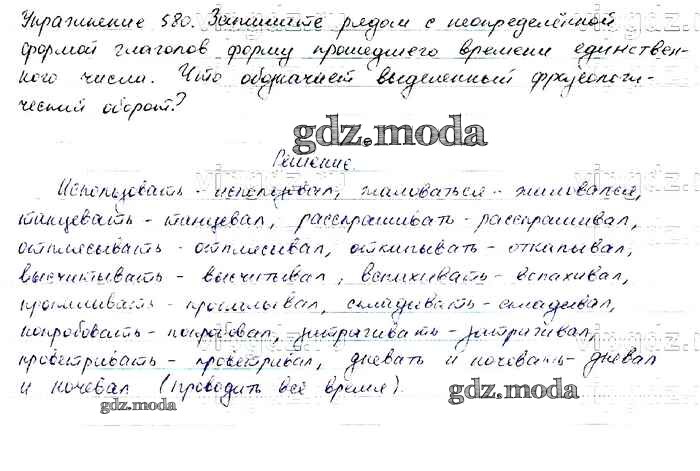 Упражнение 580. Запишите рядом с неопределённой
формой глаголов форму прошедшего времени единствен-
ного числа. Что обозначает выделенный фразеологи-
ческий оборот?
gdz.moda
Решение.
Использовать - использовал, жаловаться - жаловался,
танцевать - танцевал, расспрашивать - расспрашивал,
отплясывать - отплясывал, откапывать - откапывал,
высчитывать - высчитывал, вспахивать - вспахивал,
проглаживать - складывать - складывал,
попробовать - попробовал, затрагивать - затрагивал,
проветривать - проветривал, дневать и ночевать - дневал
и ночевал (проводить всё время).
gdz.moda
gdz.moda